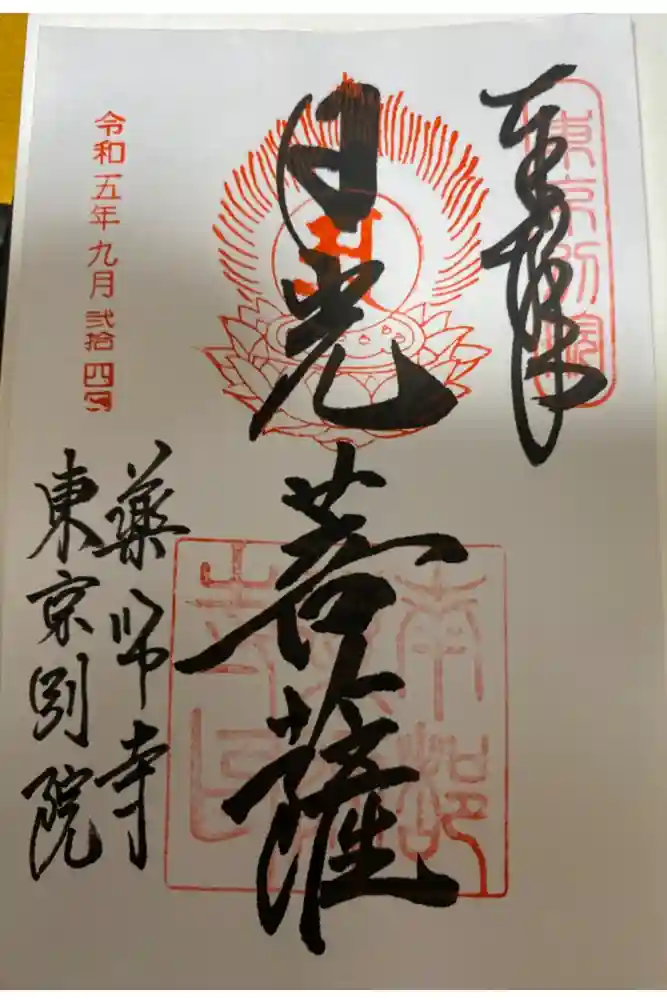 奉拝
東京別院
日光菩薩
南都薬師寺印
令和五年九月弐拾四日
薬師寺
東京別院